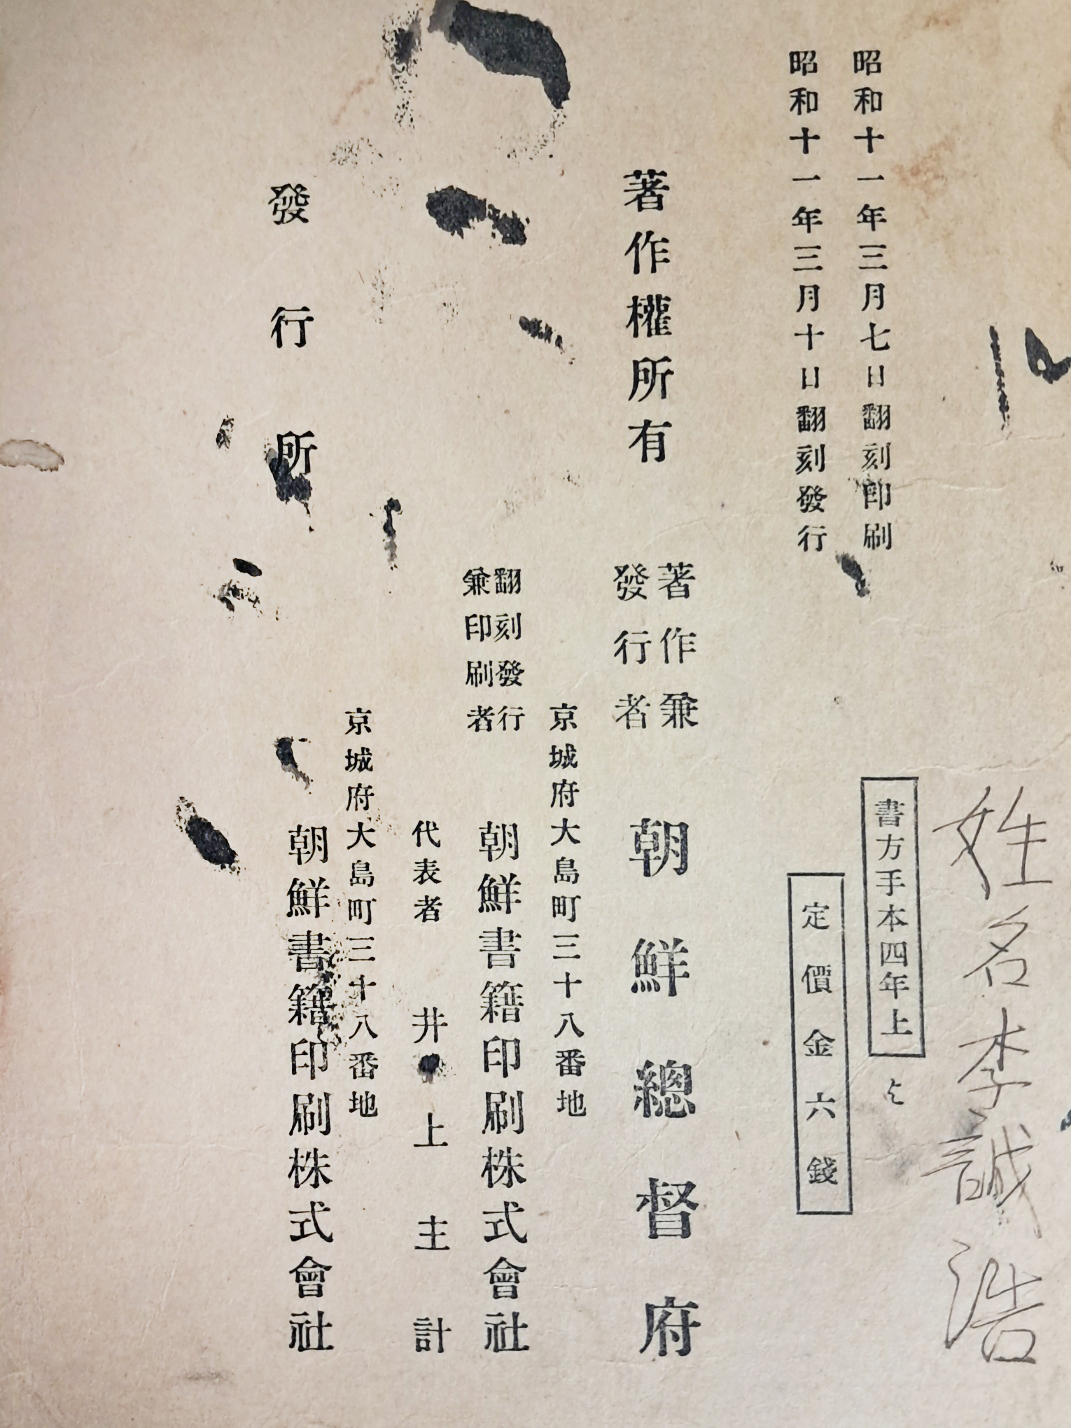 姓名李誠浩
書方手本四年上
と
定價金六錢
昭和十一年三月七日翻刻印刷
昭和十一年三月十日翻刻發行
著作權所有
著作兼
發行者
朝鮮總督府
京城府大島町三十八番地
翻刻發行
兼印刷者
朝鮮書籍印刷株式會社
代表者 井上主計
京城府大島町三十八番地
發行所
朝鮮書籍印刷株式會社